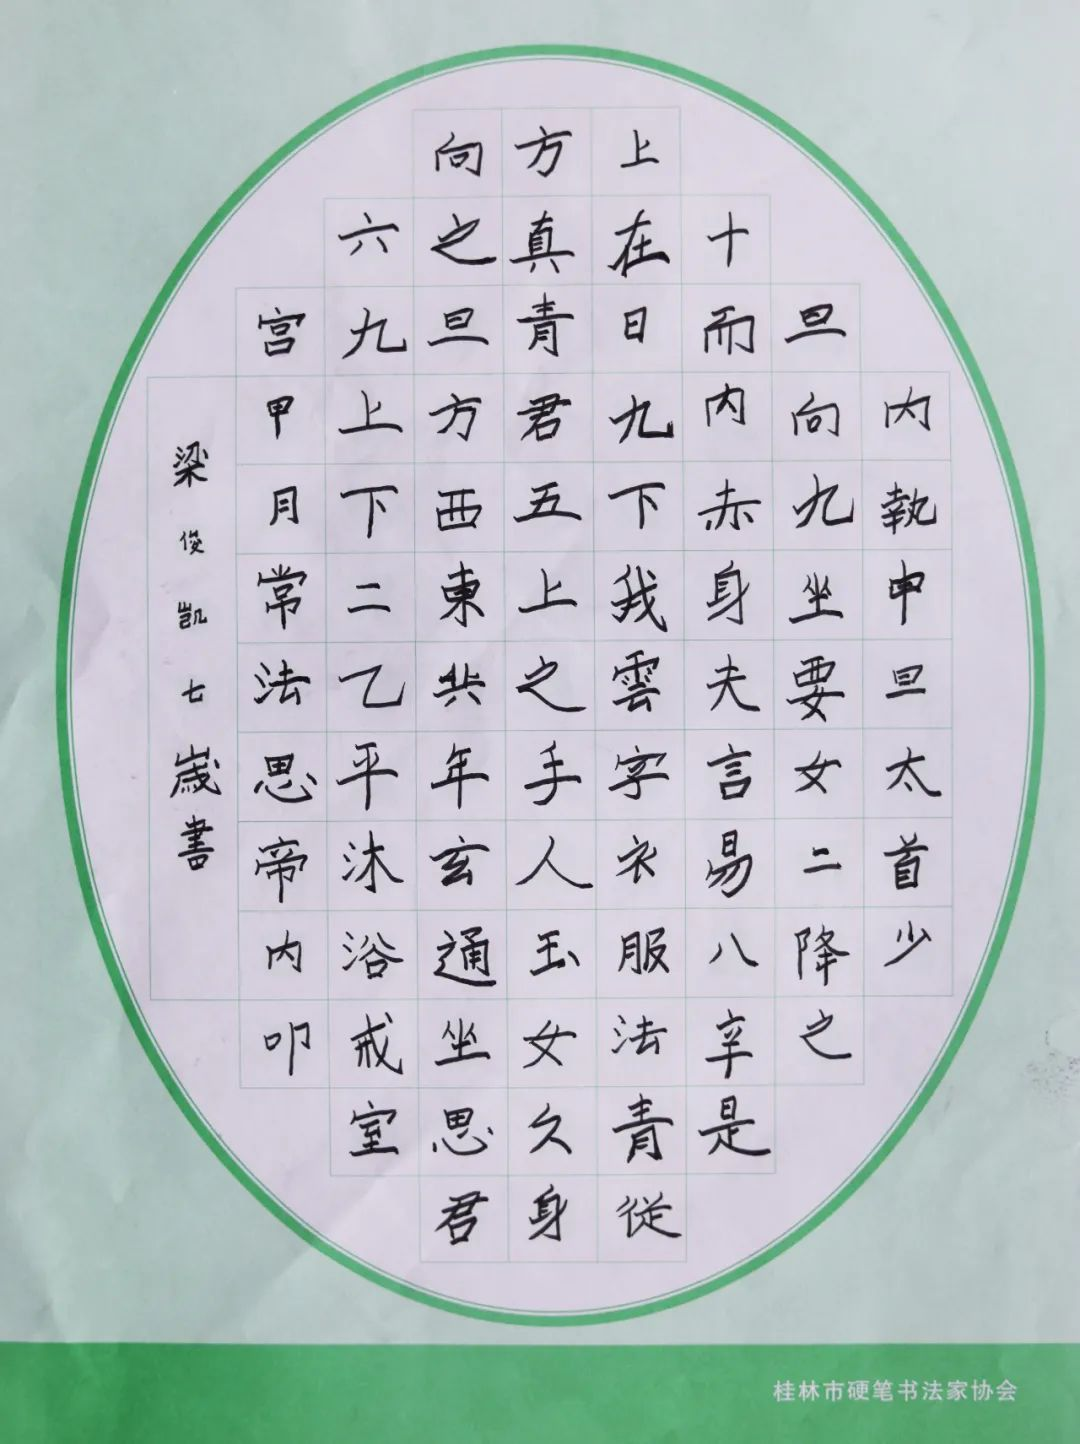 内執申旦太首少
旦向九坐要女二降之
十而内赤身夫言易八辛是
上在日九下我雲字衣服法青從
方真青君五上之手人玉女久身
向之旦方西東共年玄通坐思君
六九上下二乙平沐浴戒室
宫甲月常法思帝内叩
梁俊凯七歲書
桂林市硬笔书法家协会